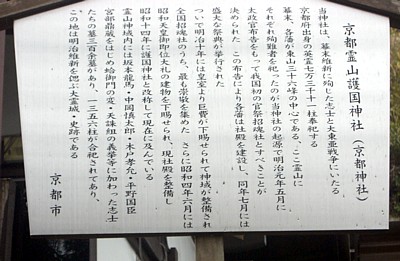 京都霊山護国神社(京都神社)
当神社は、幕末維新に殉じた志士と大東亜戦争にいたる
京都府出身の英霊七万三千十一柱奉祀する
幕末、各藩が東山三十六峰の中心である、ここ霊山に
それぞれ殉難者を祀ったのが当神社の起源で明治元年五月に
太政官布告をもって我国初の官祭招魂社とすべきことが
決められた この布告により各藩は社殿を建設し、同年七月には
盛大な祭典が挙行された
ついで明治十年には皇室より巨費が下賜られて神域が整備され
全国招魂社のうち、最も崇敬を集めた さらに昭和四年六月には
昭和天皇御即位大礼の建物を下賜せられ、現社殿を整備し
昭和十四年に護国神社と改称して現在に及んでいる
霊山神域内には坂本龍馬・中岡慎太郎・木戸孝允・平野国臣
宮部鼎蔵をはじめ蛤御門の変・天誅組の義挙等に加わった志士
たちの墓三百余墓があり、一三五六柱が合祀されてあり、
この地は明治維新を偲ぶ大霊域・史跡である
京都市